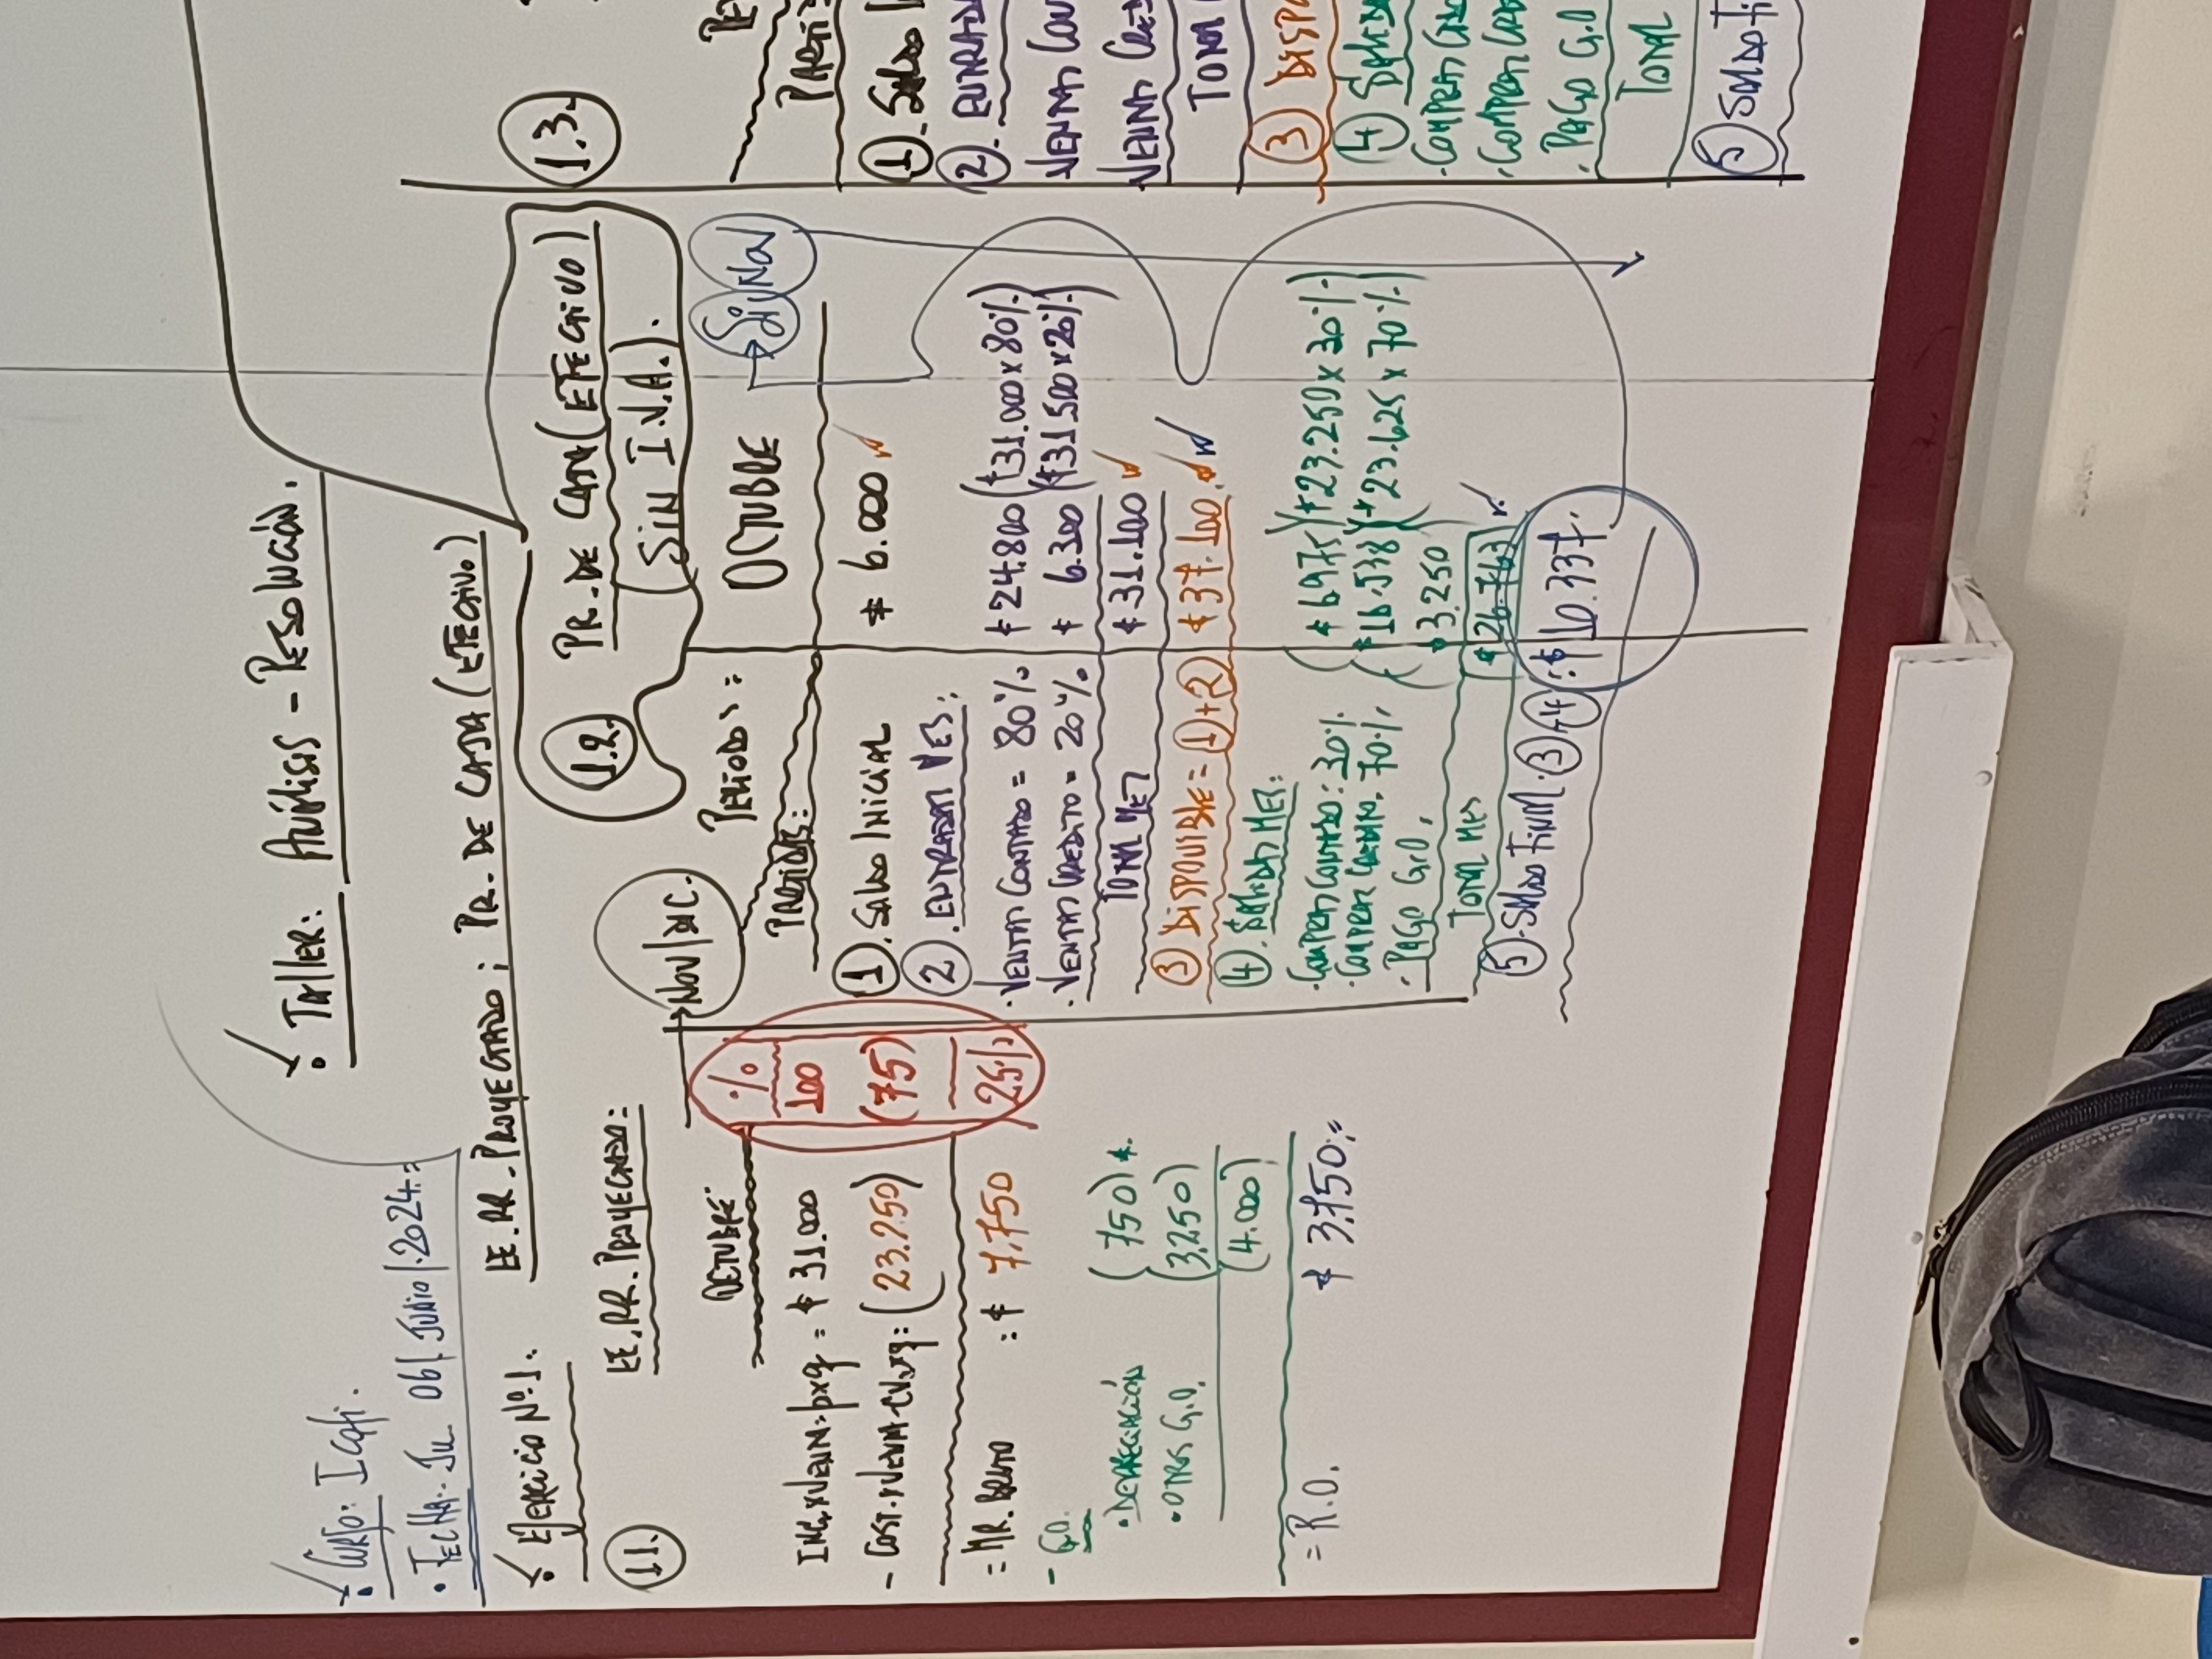 • Curso: Icofi.
• Fecha: Ju 06/ Junio/.2024.=
• Taller: Análisis - Resolución.
• Ejercicio Nº1. EE.RR. Proyectado ; Pr. de Caja (Efectivo)
1.1. EE.RR. Proyectado:
Nov/Dic.
Octubre %
Ing.xVenta=pxq = $ 31.000 100
- Cost.xVenta=CV.xq: (23.250) (75)
= Mr. Bruto : $ 7.750 25%
- G.O.
• Depreciación (750) *.
• Otros G.O. (3.250)
(4.000)
= R.O. $ 3.750.=
1.2. Pr. de Caja (Efectivo)
(Sin I.V.A.).
Periodos: Octubre → Si Nov
Partidas:
1. Saldo Inicial $ 6.000
2. Entradas Mes:
• Ventas Contado = 80% $ 24.800 ($31.000 x 80%)
• Ventas Credito = 20% $ 6.300 ($31.500 x 20%)
Total Mes $ 31.100
3 Disponible = 1 + 2 $ 37.100.
4. Salidas Mes:
• Compras Contado: 30% ($ 6.975)($23.250 x 30%)
• Compras Credito. 70% ($16.538)($23.625 x 70%)
• Pago G.O. $ 3.250
Total Mes $ 26.763
5. Saldo Final. 3 - 4 : $ 10.337.
1.3.
Pe
Parti
1. Saldo
2. Entrada
Ventas Con
Ventas Cred
Total
3 Dispo
4 Salida
• Compras
• Compras
• Pago G.O
Total
5 Saldo Fi